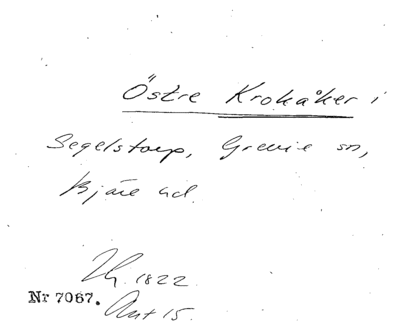 Östre Krokåker i
Segelstorp, Grevie sn,
Bjäre hd.
Hy. 1822
Nr 7067. Akt 15.